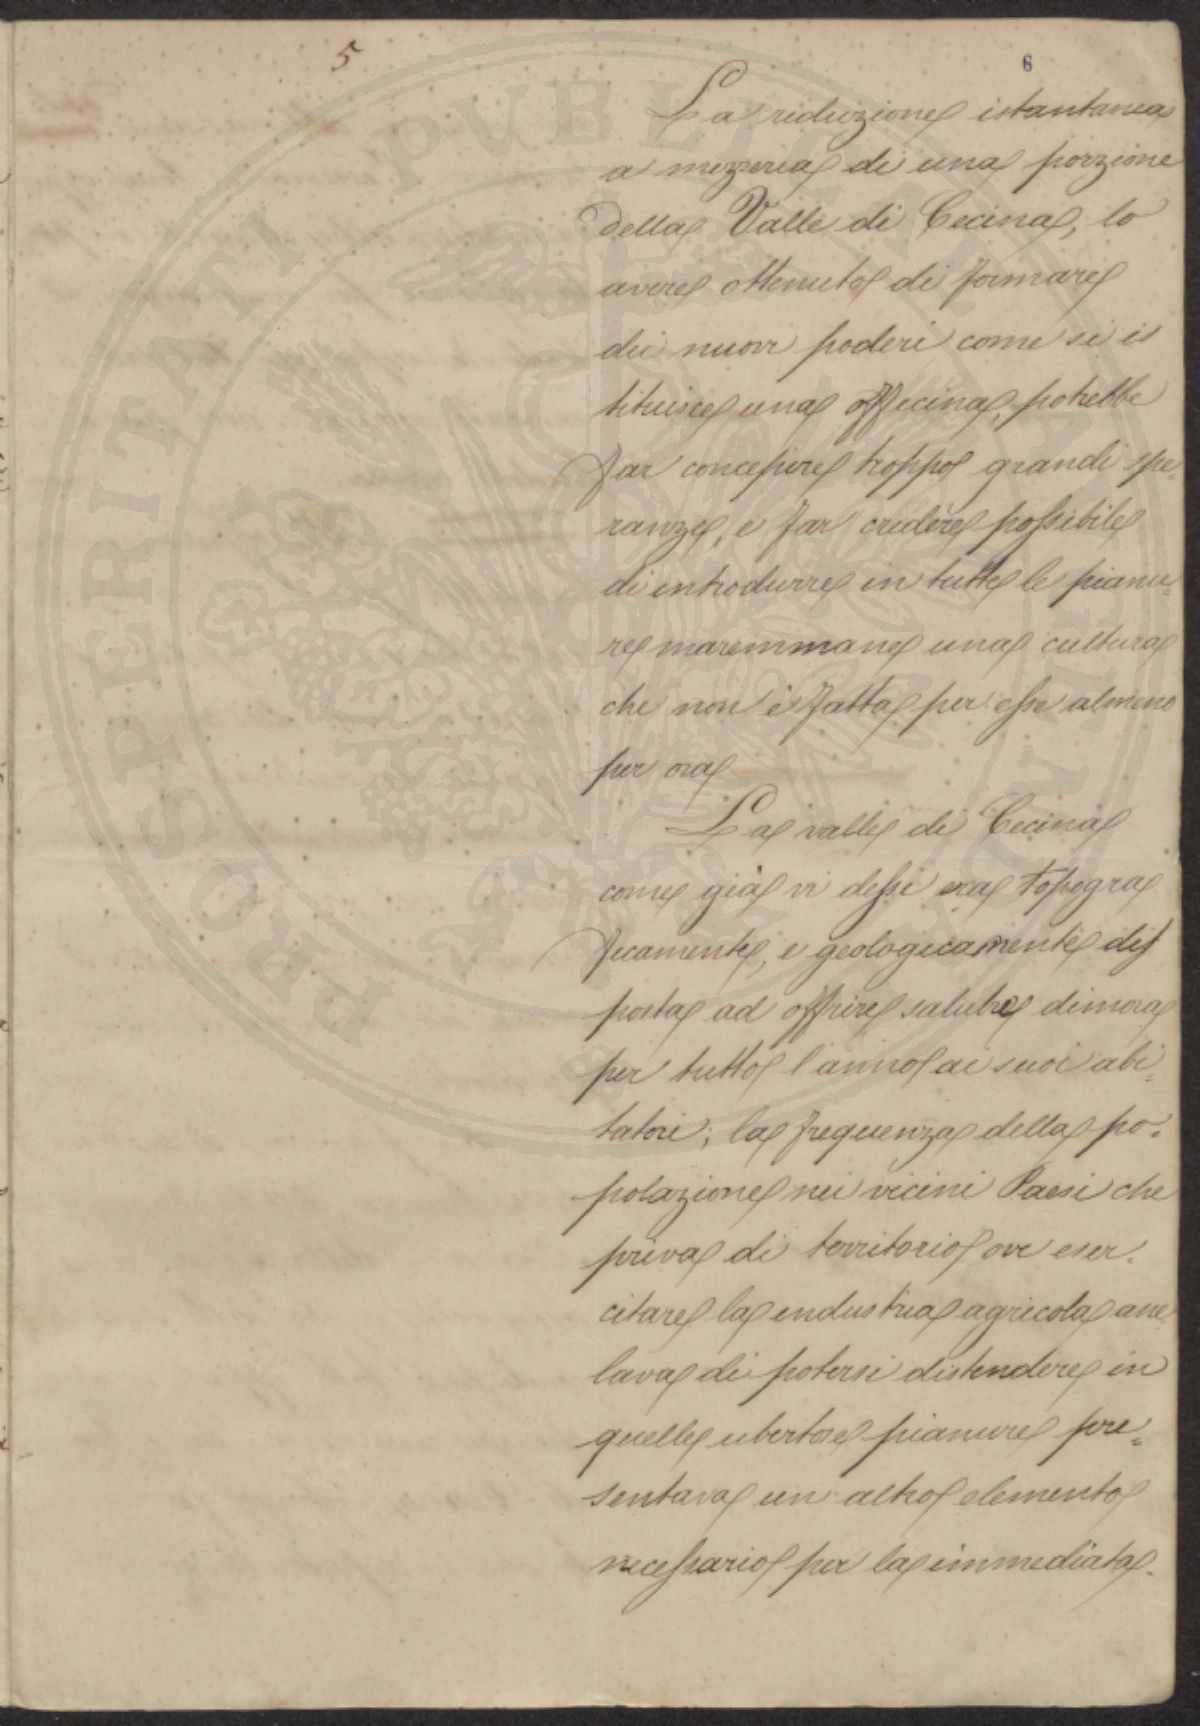 5
6
La riduzione istantanea
a mezzeria di una porzione
della Valle di Cecina, lo
avere ottenuto di formare
dei nuovi poderi come si is
tituisce una officina, potrebbe
far concepire troppo grandi spe-
ranze, e far credere possibile
di introdurre in tutte le pianu=
re maremmane una cultura
che non è fatta per esse almeno
per ora
La valle di Cecina
come già vi dessi era topogra
ficamente, e geologicamente dis
posta ad offrire salubre dimora
per tutto l'anno ai suoi abi=
tatori; la frequenza della po=
polazione nei vicini Paesi che
priva di territorio ove eser=
citare la industria agricola ane
lava di potersi distendere in
quelle ubertose pianure pre=
sentava un altro elemento
necessario per la immediata
PROSPERITATI PVBLICAE